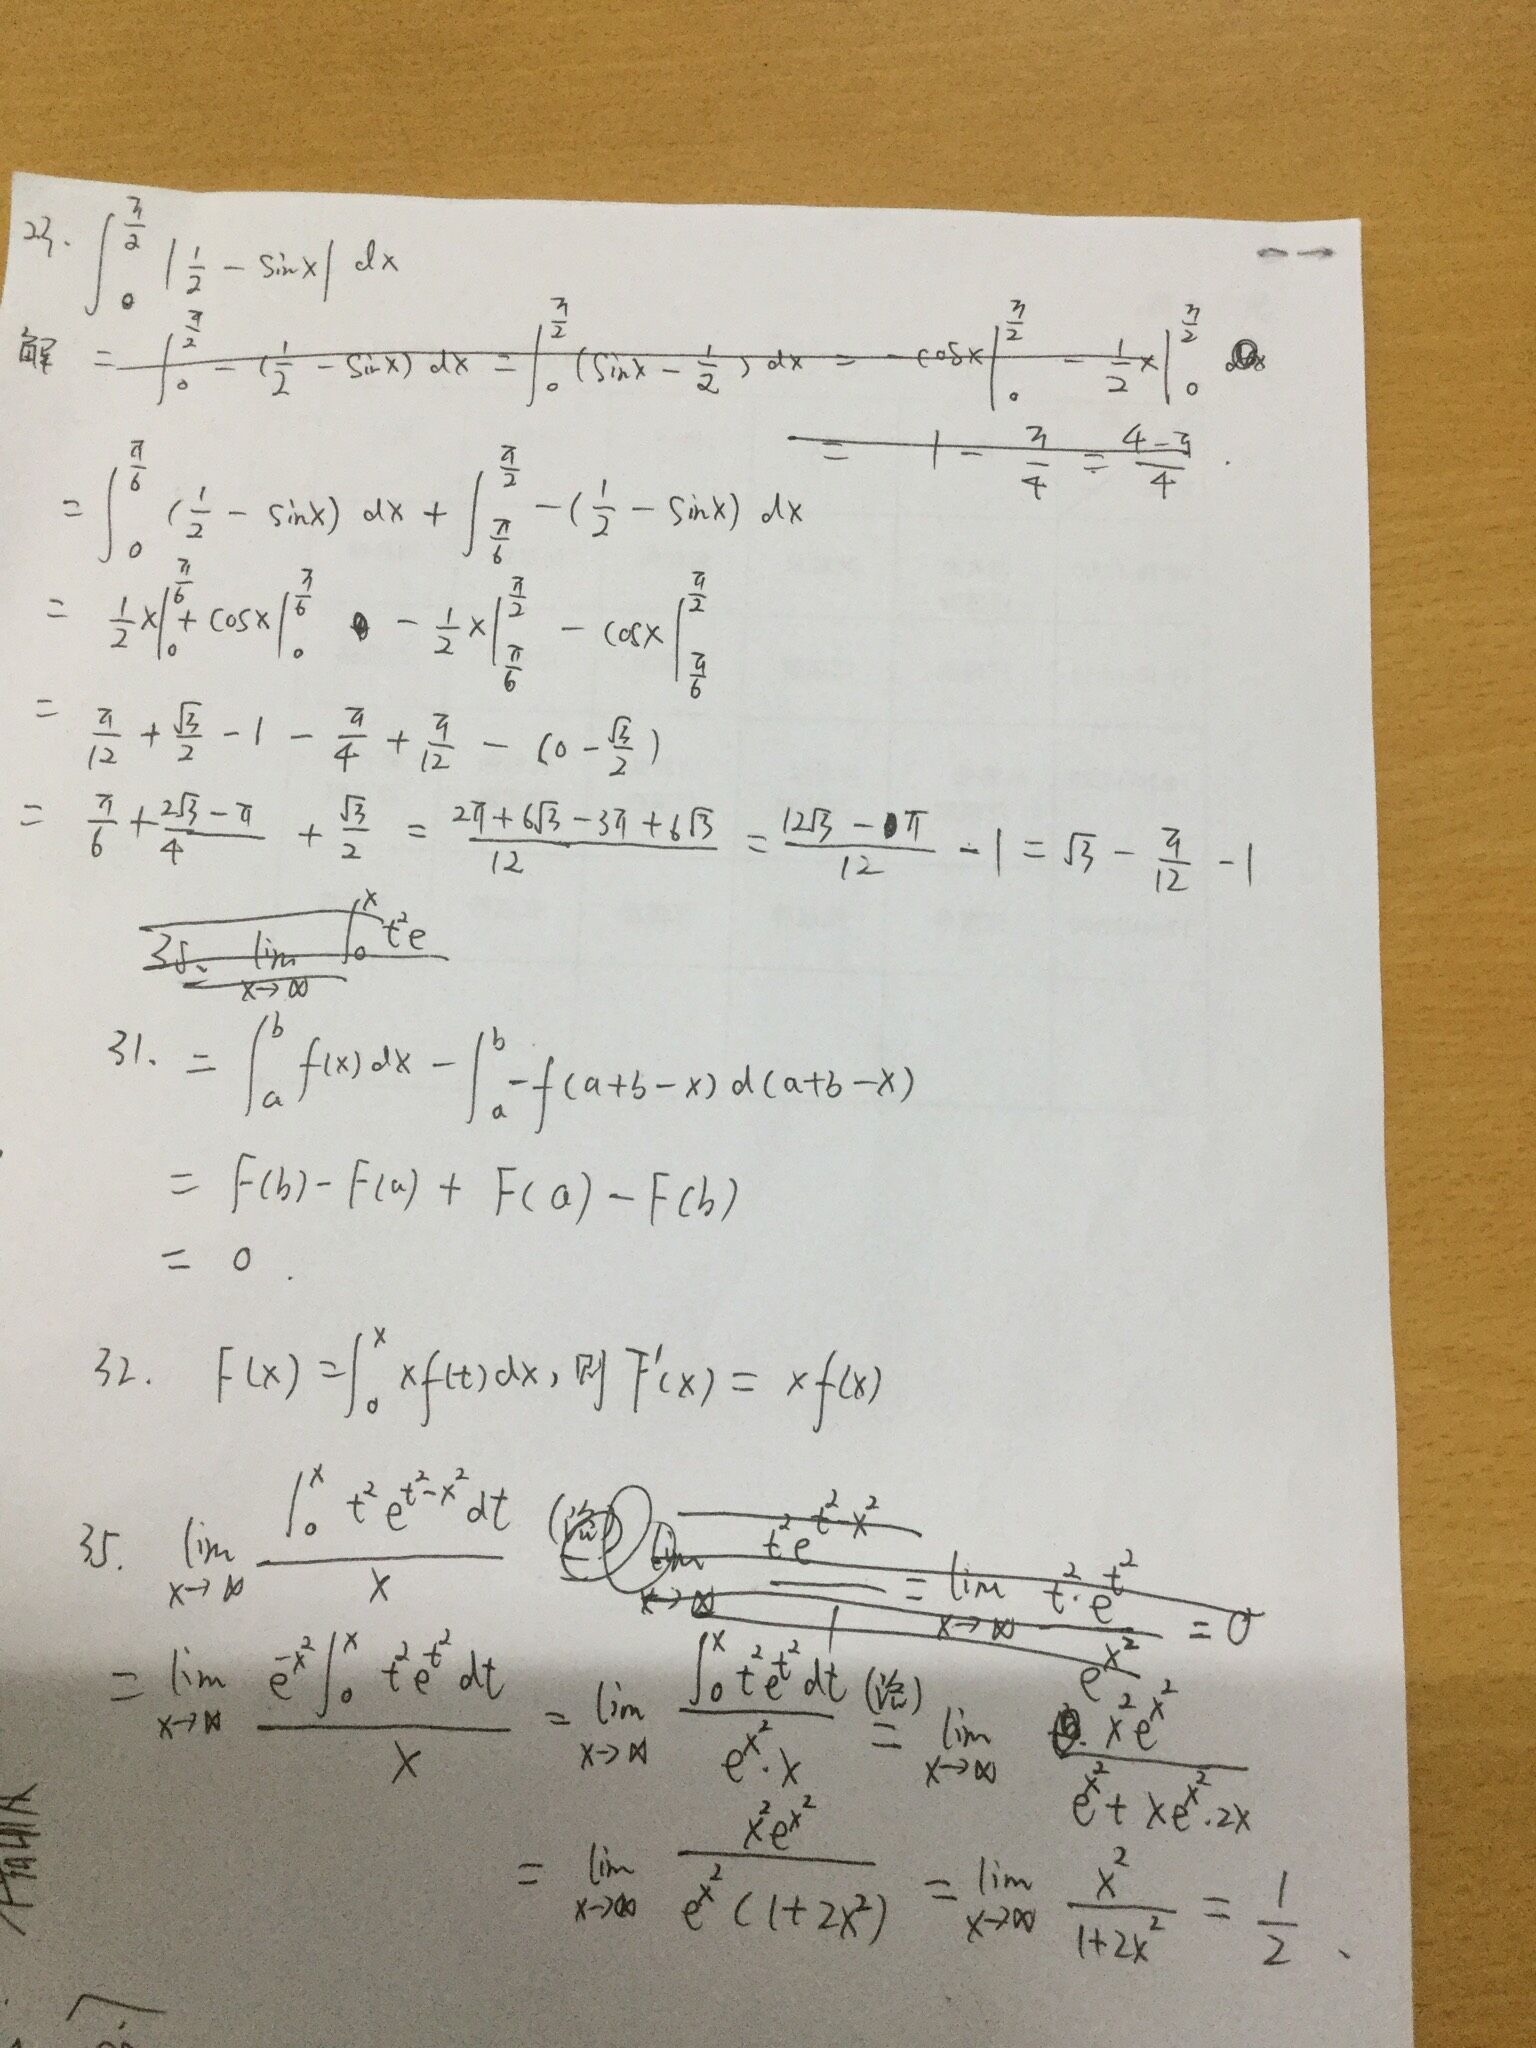 23. ∫₀^{π/2} |1/2 - sinx| dx
解 = ∫₀^{π/2} -(1/2 - sinx) dx = ∫₀^{π/2} (sinx - 1/2) dx = -cosx|₀^{π/2} - 1/2 x|₀^{π/2}
= 1 - π/4 = (4-π)/4 .
= ∫₀^{π/6} (1/2 - sinx) dx + ∫_{π/6}^{π/2} -(1/2 - sinx) dx
= 1/2 x|₀^{π/6} + cosx|₀^{π/6} - 1/2 x|_{π/6}^{π/2} - cosx|_{π/6}^{π/2}
= π/12 + √3/2 - 1 - π/4 + π/12 - (0 - √3/2)
= π/6 + (2√3 - π)/4 + √3/2 = (2π + 6√3 - 3π + 6√3)/12 = (12√3 - π)/12 - 1 = √3 - π/12 - 1
35. lim_{x→∞} ∫₀^x t²e
31. = ∫_a^b f(x) dx - ∫_a^b -f(a+b-x) d(a+b-x)
= F(b) - F(a) + F(a) - F(b)
= 0 .
32. F(x) = ∫₀^x xf(t) dx, 则 F'(x) = xf(x)
35. lim_{x→∞} (∫₀^x t²e^{t²-x²} dt)/x (洛) = lim_{x→∞} (t²e^{t²-x²})/1 = lim_{x→∞} (t²·e^{t²})/e^{x²} = 0
= lim_{x→∞} (e^{-x²} ∫₀^x t²e^{t²} dt)/x = lim_{x→∞} (∫₀^x t²e^{t²} dt)/(e^{x²}·x) (洛) = lim_{x→∞} (x²e^{x²})/(e^{x²} + xe^{x²}·2x)
= lim_{x→∞} (x²e^{x²})/(e^{x²}(1+2x²)) = lim_{x→∞} x²/(1+2x²) = 1/2 、